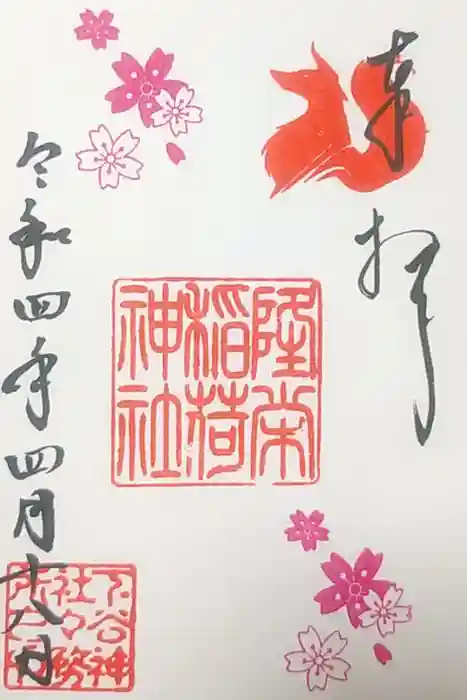 奉拝
隆栄
稲荷
神社
令和四年四月十八日
下谷神
社々務
所之印